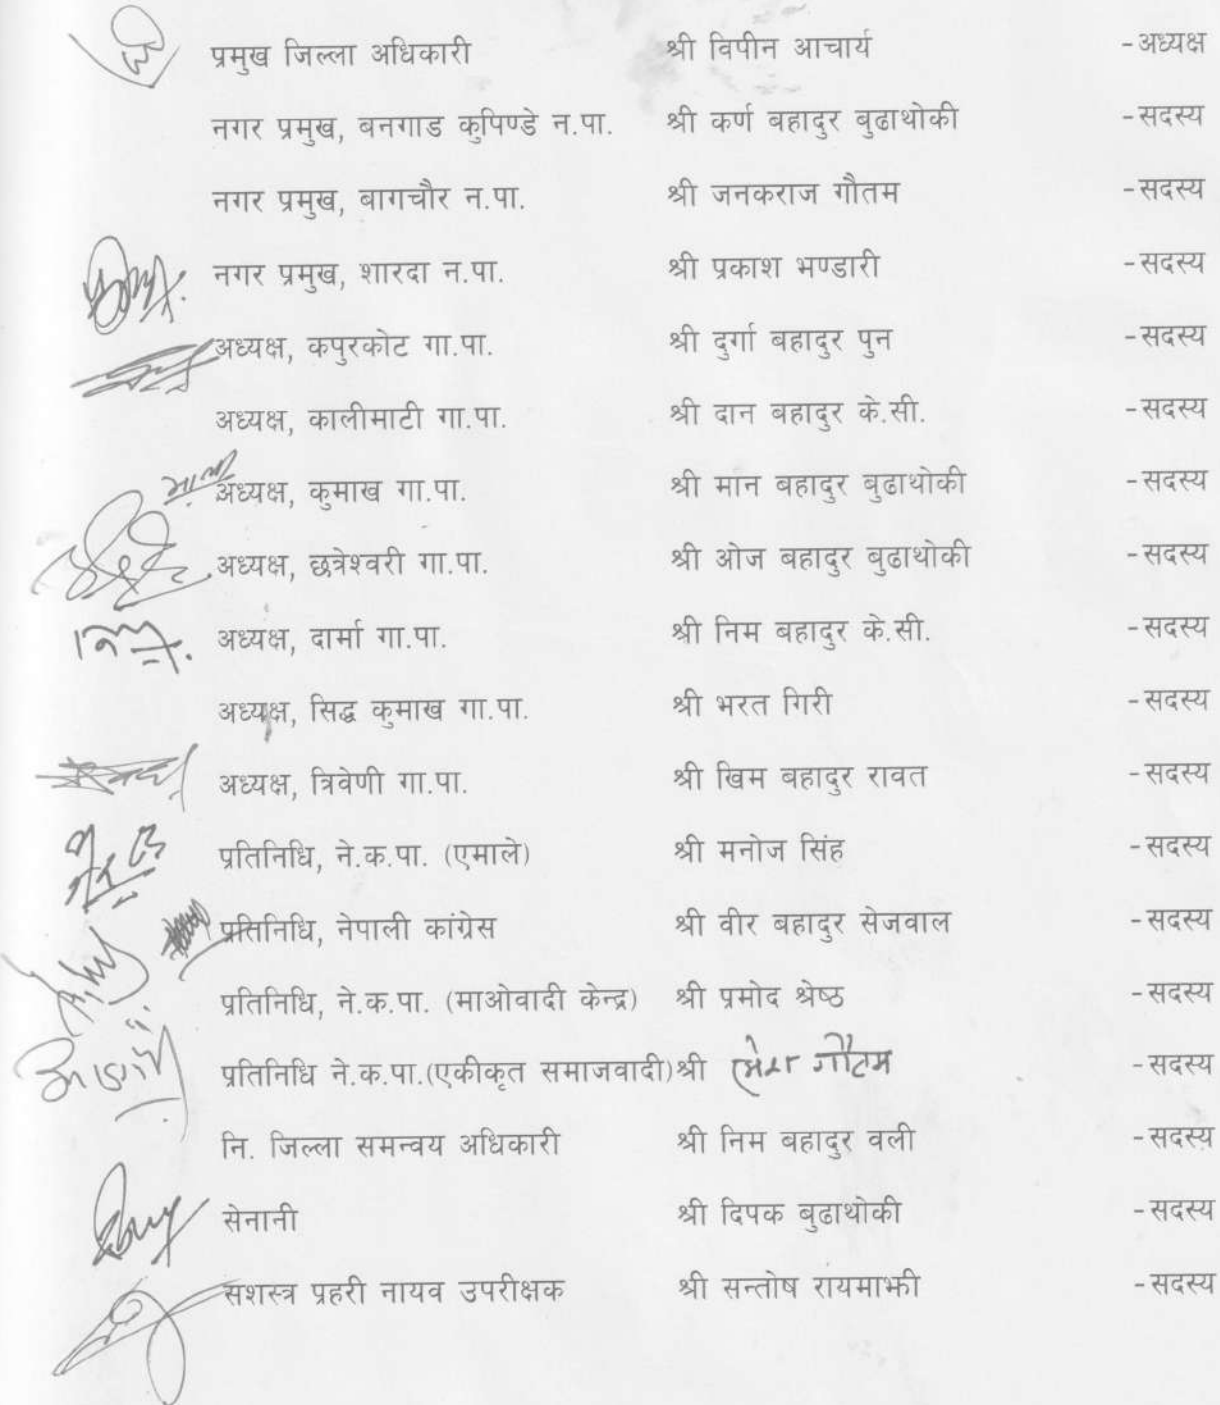 प्रमुख जिल्ला अधिकारी श्री विपीन आचार्य -अध्यक्ष
नगर प्रमुख, बनगाड कुपिण्डे न.पा. श्री कर्ण बहादुर बुढाथोकी -सदस्य
नगर प्रमुख, बागचौर न.पा. श्री जनकराज गौतम -सदस्य
नगर प्रमुख, शारदा न.पा. श्री प्रकाश भण्डारी -सदस्य
अध्यक्ष, कपुरकोट गा.पा. श्री दुर्गा बहादुर पुन -सदस्य
अध्यक्ष, कालीमाटी गा.पा. श्री दान बहादुर के.सी. -सदस्य
अध्यक्ष, कुमाख गा.पा. श्री मान बहादुर बुढाथोकी -सदस्य
अध्यक्ष, छत्रेश्वरी गा.पा. श्री ओज बहादुर बुढाथोकी -सदस्य
अध्यक्ष, दार्मा गा.पा. श्री निम बहादुर के.सी. -सदस्य
अध्यक्ष, सिद्ध कुमाख गा.पा. श्री भरत गिरी -सदस्य
अध्यक्ष, त्रिवेणी गा.पा. श्री खिम बहादुर रावत -सदस्य
प्रतिनिधि, ने.क.पा. (एमाले) श्री मनोज सिंह -सदस्य
प्रतिनिधि, नेपाली कांग्रेस श्री वीर बहादुर सेजवाल -सदस्य
प्रतिनिधि, ने.क.पा. (माओवादी केन्द्र) श्री प्रमोद श्रेष्ठ -सदस्य
प्रतिनिधि ने.क.पा.(एकीकृत समाजवादी) श्री गौतम -सदस्य
नि. जिल्ला समन्वय अधिकारी श्री निम बहादुर वली -सदस्य
सेनानी श्री दिपक बुढाथोकी -सदस्य
सशस्त्र प्रहरी नायव उपरीक्षक श्री सन्तोष रायमाझी -सदस्य